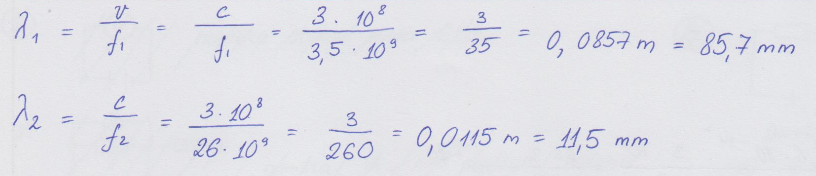 λ₁ = v/f₁ = c/f₁ = 3 · 10⁸/3,5 · 10⁹ = 3/35 = 0,0857 m = 85,7 mm
λ₂ = c/f₂ = 3 · 10⁸/26 · 10⁹ = 3/260 = 0,0115 m = 11,5 mm